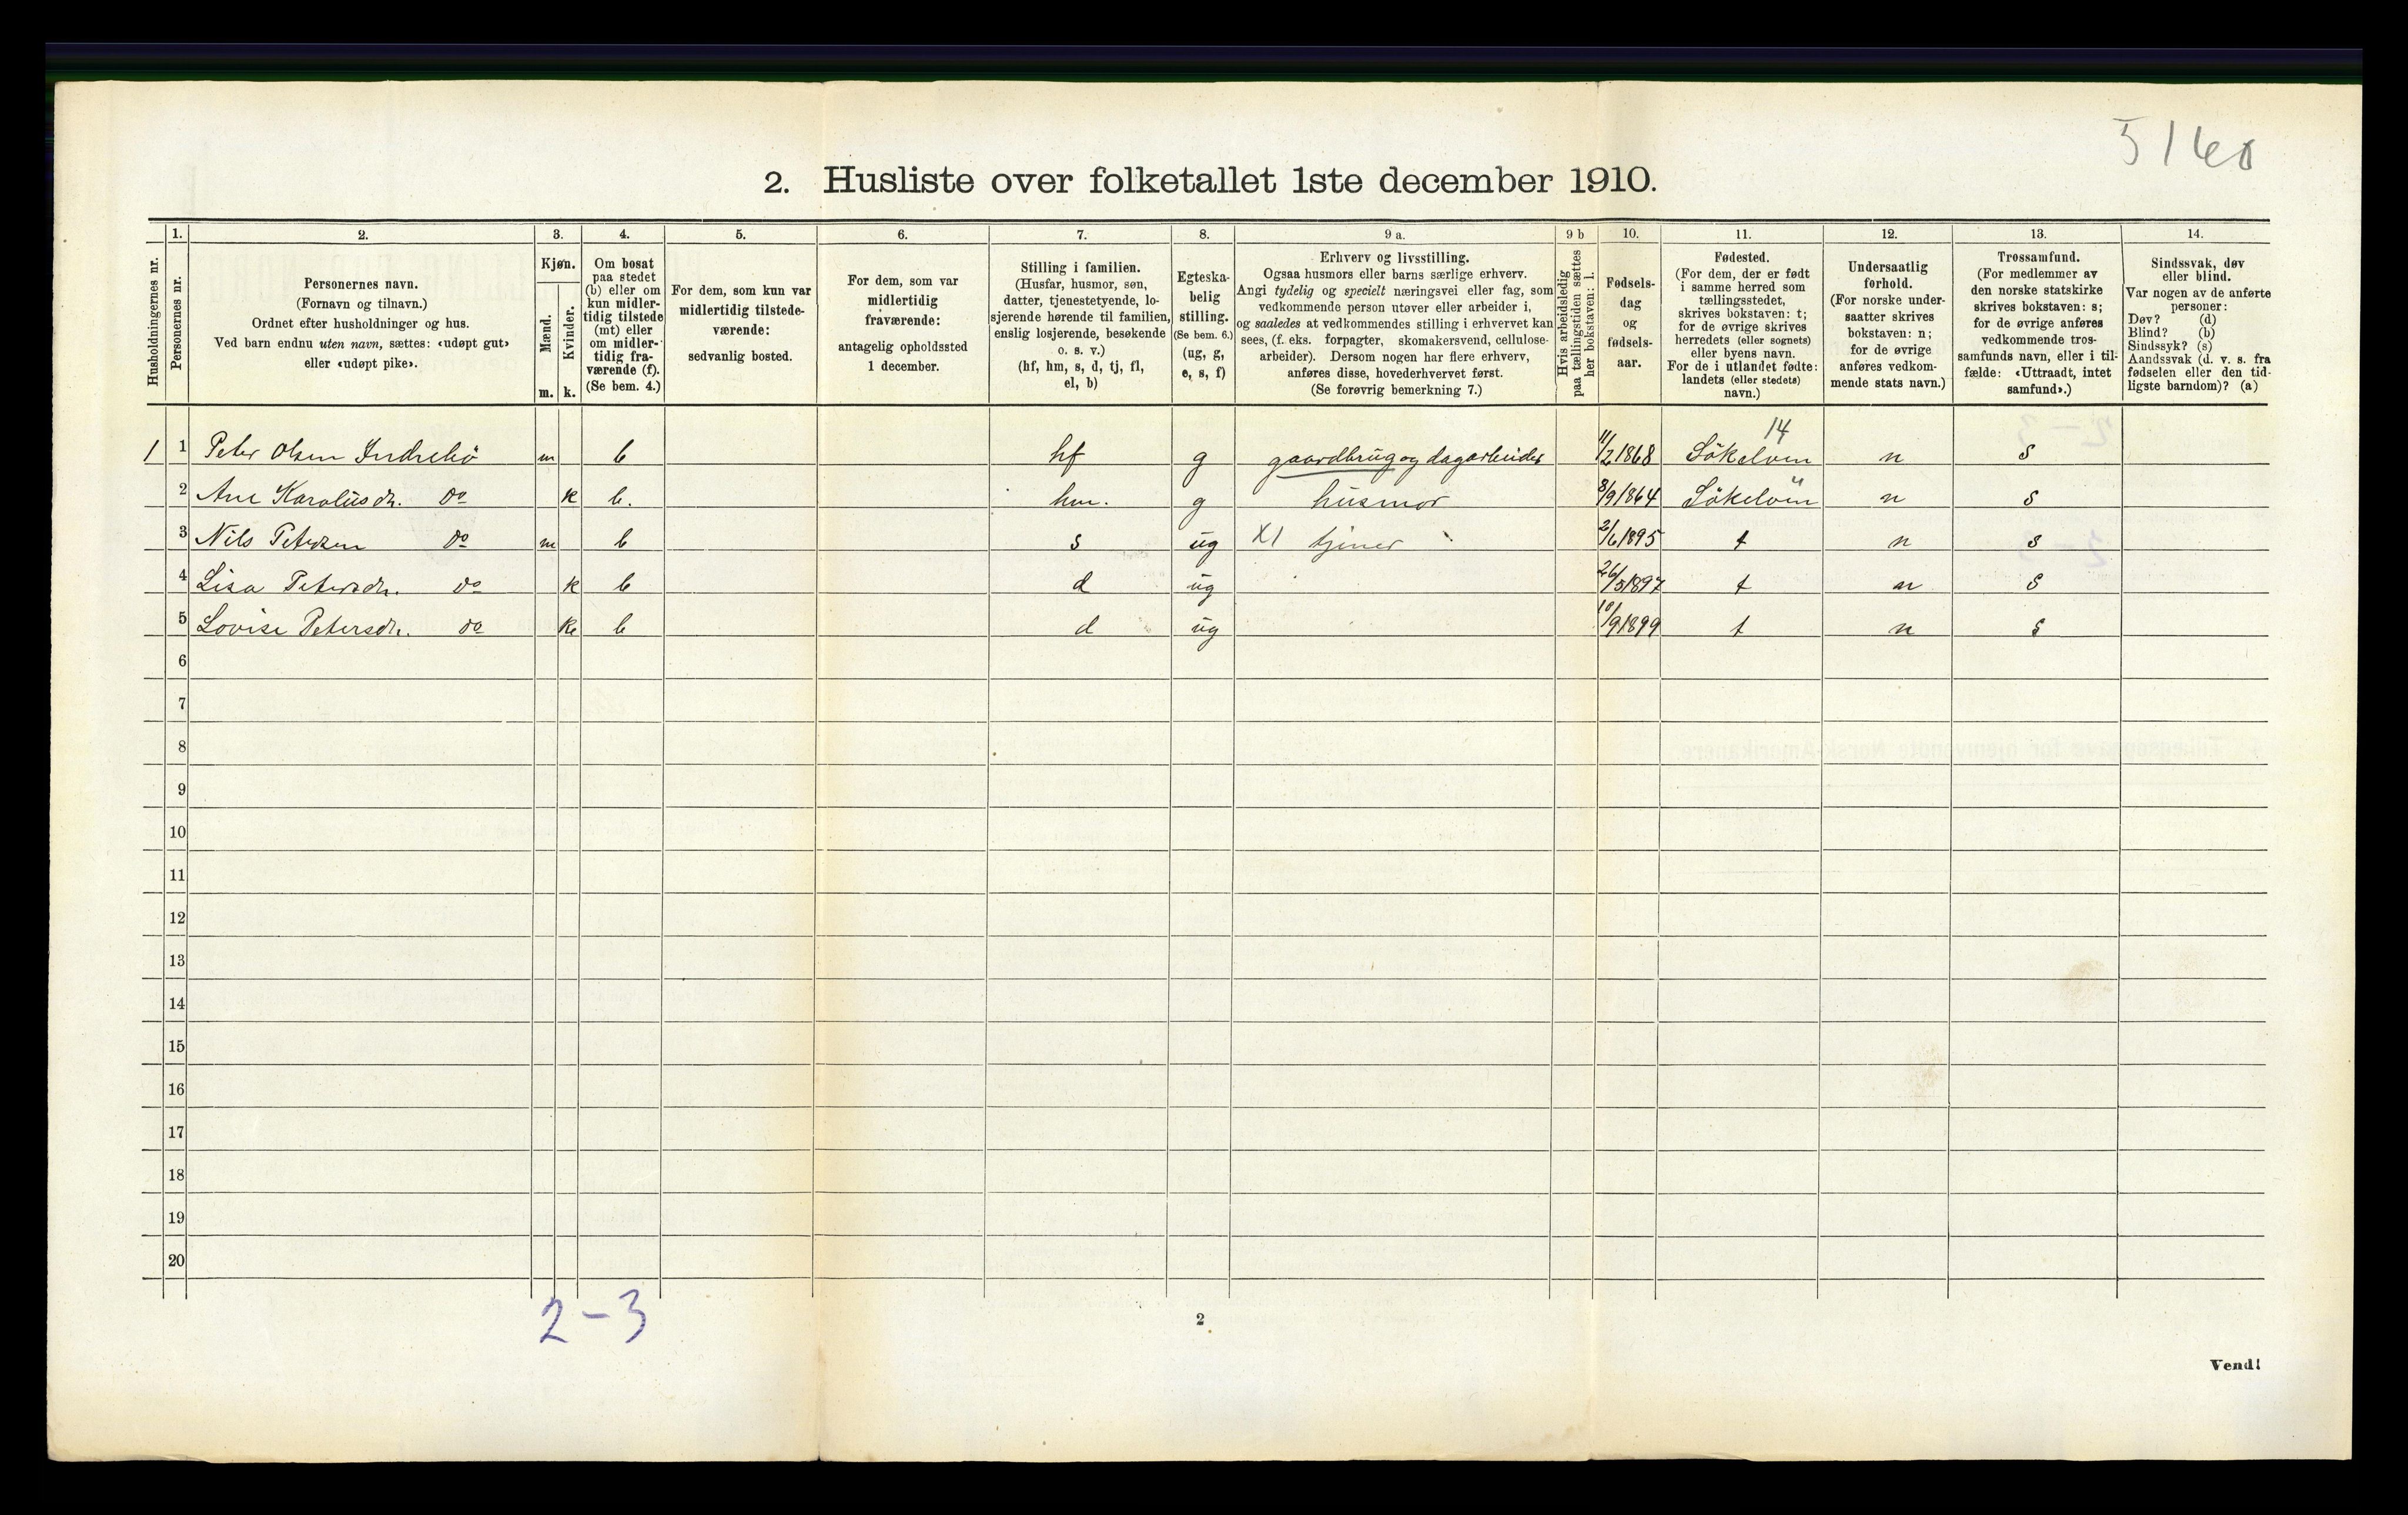 5160
2. Husliste over folketallet 1ste december 1910.
Husholdningernes nr.
1.
Personernes nr.
2.
Personernes navn.
(Fornavn og tilnavn.)
Ordnet efter husholdninger og hus.
Ved barn endnu uten navn, sættes: «udøpt gut»
eller «udøpt pike».
3.
Kjøn.
Mænd.
m.
Kvinder.
k.
4.
Om bosat
paa stedet
(b) eller om
kun midler-
tidig tilstede
(mt) eller
om midler-
tidig fra-
værende (f).
(Se bem. 4.)
5.
For dem, som kun var
midlertidig tilstede-
værende:
sedvanlig bosted.
6.
For dem, som var
midlertidig
fraværende:
antagelig opholdssted
1 december.
7.
Stilling i familien.
(Husfar, husmor, søn,
datter, tjenestetyende, lo-
sjerende hørende til familien,
enslig losjerende, besøkende
o. s. v.)
(hf, hm, s, d, tj, fl,
el, b)
8.
Egteska-
belig
stilling.
(Se bem. 6.)
(ug, g,
e, s, f)
9 a.
Erhverv og livsstilling.
Ogsaa husmors eller barns særlige erhverv.
Angi tydelig og specielt næringsvei eller fag, som
vedkommende person utøver eller arbeider i,
og saaledes at vedkommendes stilling i erhvervet kan
sees, (f. eks. forpagter, skomakersvend, cellulose-
arbeider). Dersom nogen har flere erhverv,
anføres disse, hovederhvervet først.
(Se forøvrig bemerkning 7.)
9 b
Hvis arbeidsledig
paa tællingstiden sættes
her bokstaven: l.
10.
Fødsels-
dag
og
fødsels-
aar.
11.
Fødested.
(For dem, der er født
i samme herred som
tællingsstedet,
skrives bokstaven: t;
for de øvrige skrives
herredets (eller sognets)
eller byens navn.
For de i utlandet fødte:
landets (eller stedets)
navn.)
12.
Undersaatlig
forhold.
(For norske under-
saatter skrives
bokstaven: n;
for de øvrige
anføres vedkom-
mende stats navn.)
13.
Trossamfund.
(For medlemmer av
den norske statskirke
skrives bokstaven: s;
for de øvrige anføres
vedkommende tros-
samfunds navn, eller i til-
fælde: «Uttraadt, intet
samfund».)
14.
Sindssvak, døv
eller blind.
Var nogen av de anførte
personer:
Døv? (d)
Blind? (b)
Sindssyk? (s)
Aandssvak (d. v. s. fra
fødselen eller den tid-
ligste barndom)? (a)
14
1 1 Peter Olsen Indrebö m b hf g gaardbrug og dagarbeider 11/2 1868 Sökelven n s
2 Ane Karolusdr. do k b. hm. g husmor 8/9 1864 Sökelven " n s
3 Nils Petersen do m b s ug X1 tjener 2/6 1895 t n s
4 Lisa Petersdr. do k b d ug 26/5 1897 t n s
5 Lovise Petersdr. do k b d ug 10/9 1899 t n s
6
7
8
9
10
11
12
13
14
15
16
17
18
19
20
2-3
2
Vend!